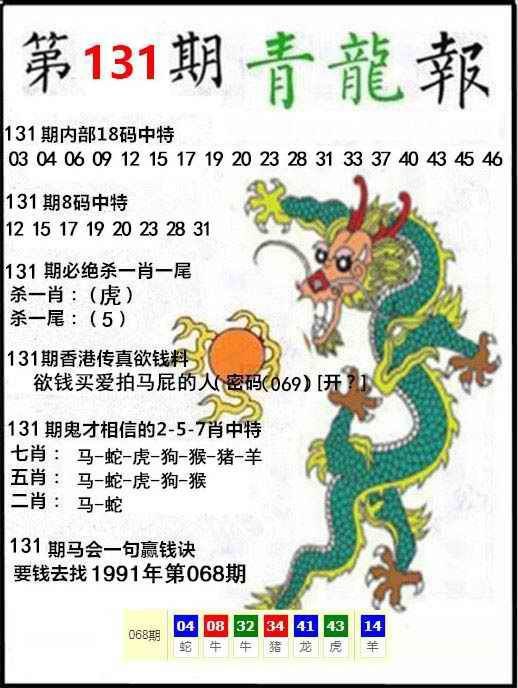 第131期青龍報
131期内部18码中特
03 04 06 09 12 15 17 19 20 23 28 31 33 37 40 43 45 46
131期8码中特
12 15 17 19 20 23 28 31
131 期必绝杀一肖一尾
杀一肖：(虎)
杀一尾：(5)
131期香港传真欲钱料
欲钱买爱拍马屁的人(密码(069) [开？]
131期鬼才相信的2-5-7肖中特
七肖： 马-蛇-虎-狗-猴-猪-羊
五肖： 马-蛇-虎-狗-猴
二肖： 马-蛇
131期马会一句赢钱诀
要钱去找1991年第068期
068期 04 08 32 34 41 43 14
蛇 牛 牛 猪 龙 虎 羊